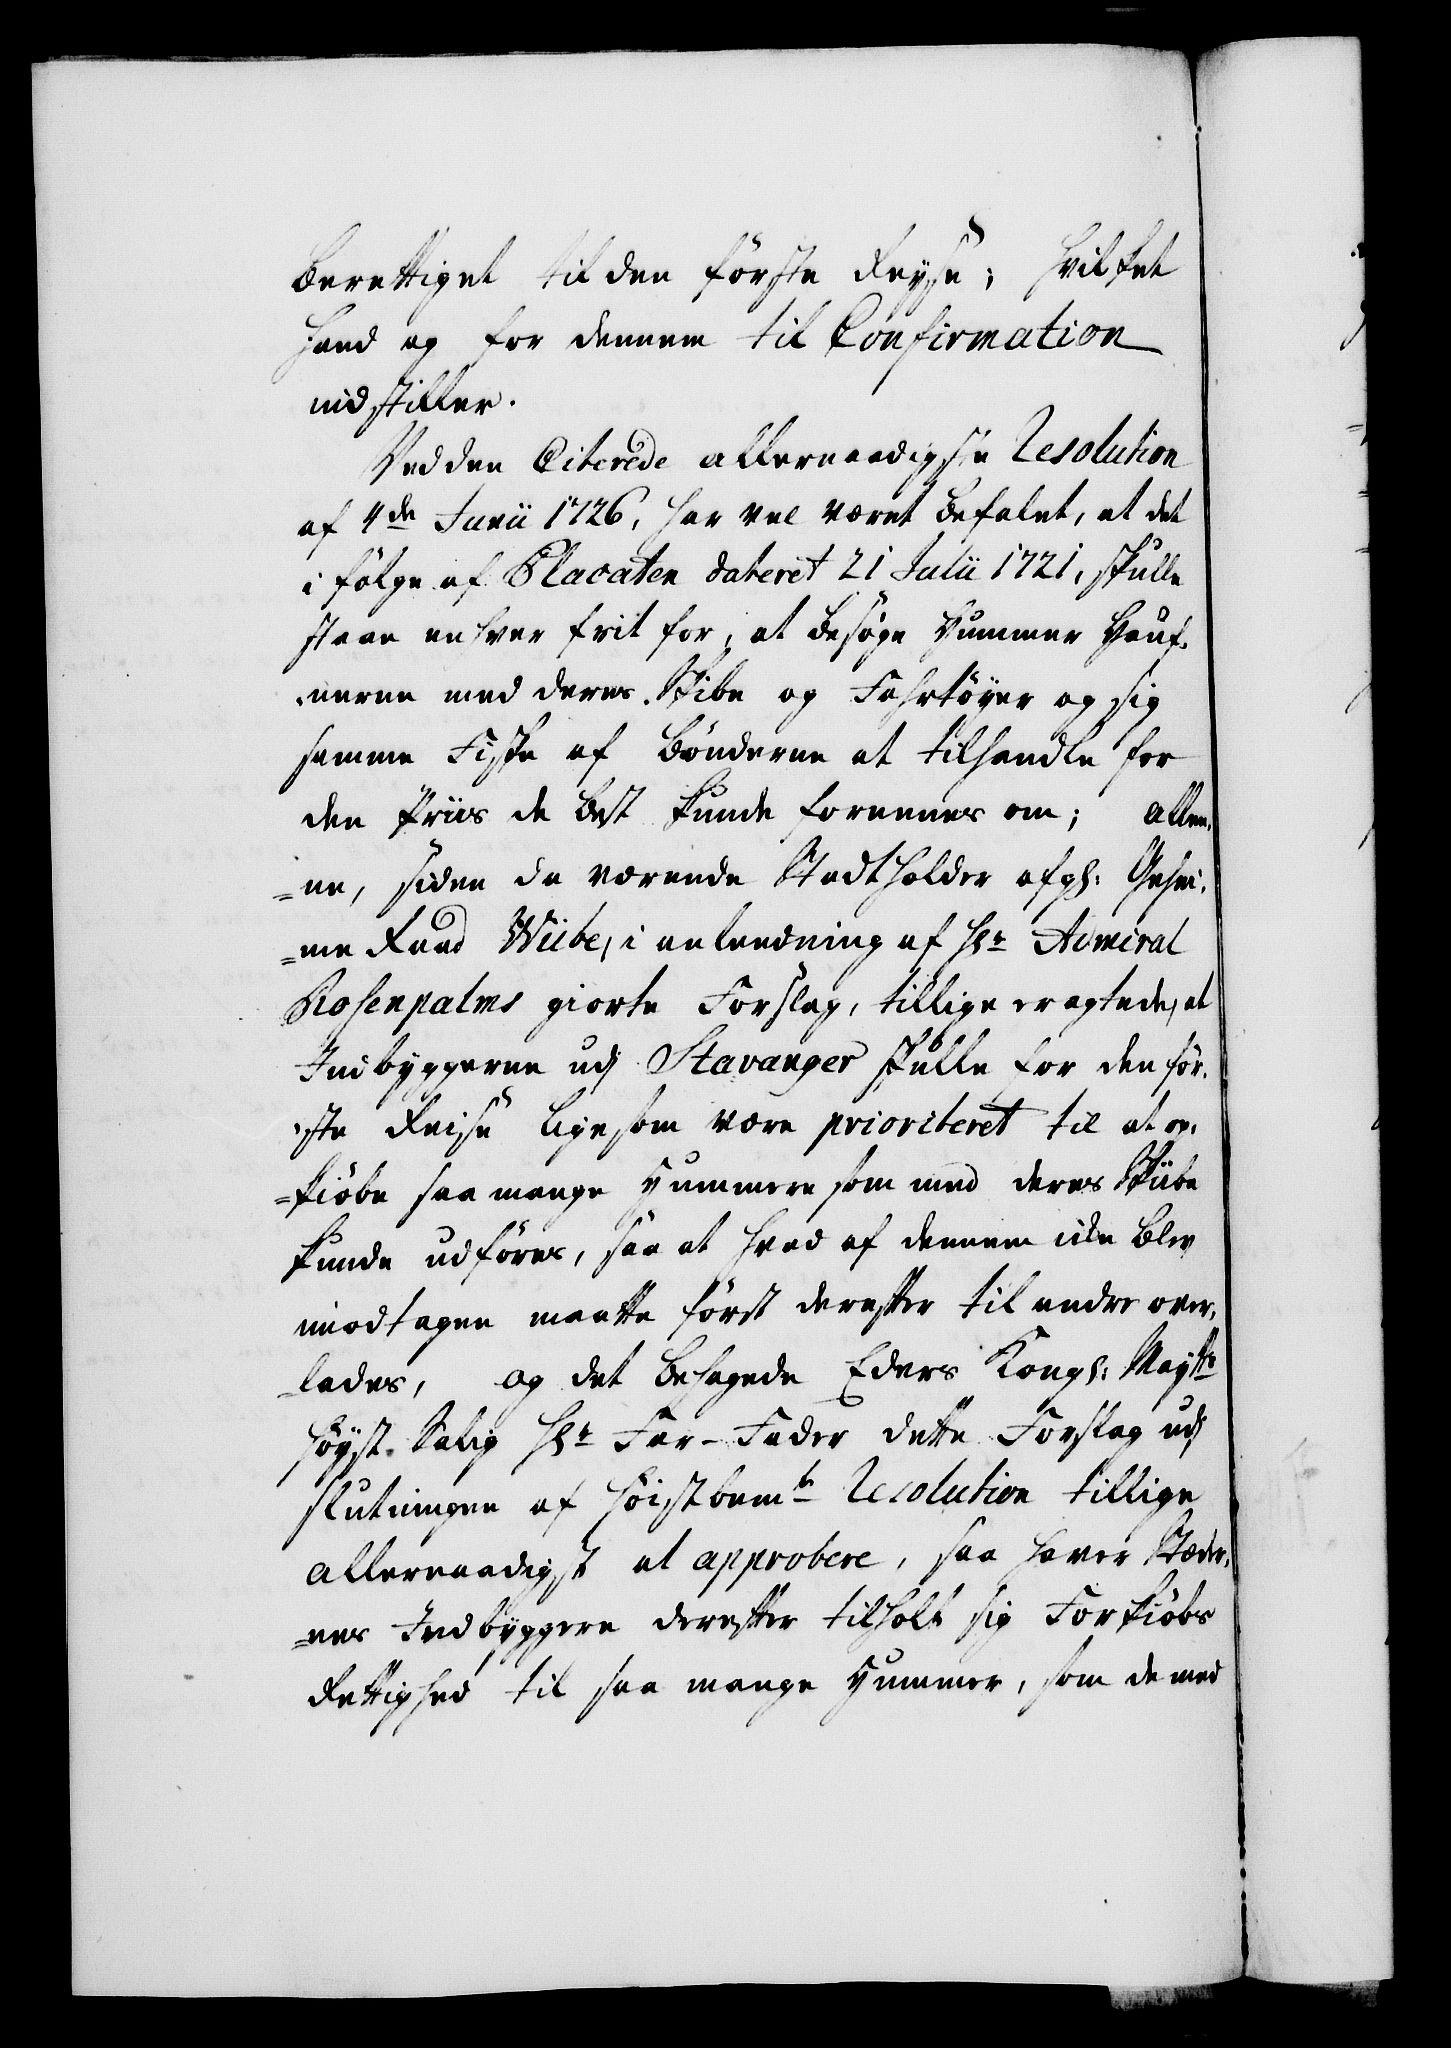 berettiget til den förste Reyse; hvilket
hand og for dennem til Confirmation
indstiller.
Ved den Citerede allernaadigste Resolution
af 4de Junii 1726, har vel været befalet, at det
i fölge af Placaten dateret 21 Julii 1721, skulle
staae enhver frit for, at besöge Hummer Hauf-
nerne med deres Skibe og Fahrtöyer og sig
samme Fiske af Bönderne at tilhandle for
den Priis de best kunde forenes om; allee-
=ne, siden da værende Stadtholder afgl: Gehei-
=me Raad Wiibe, i anledning af Hr Admiral
Rosenpalms giorte Forslag, tillige eragtede, at
Indbyggerne udj Stavanger skulle for den för-
ste Reise ligesom være prioriteret til at op-
=kiöbe saa mange Hummere som med deres Skiibe
kunde udföres, saa at hvad af dennem iche blev
imodtagen maatte först derefter til andre over-
=lades, og det behagede Eders Kongl: Maytts
höyst-Salig Hr Far-Fader dette Forslag udj
slutningen af höistbemte Resolution tillige
allernaadigst at approbere, saa haver Stæder-
=nes Indbyggere derefter tilholt sig Forkiöbs
Rettighed til saa mange Hummer, som de med